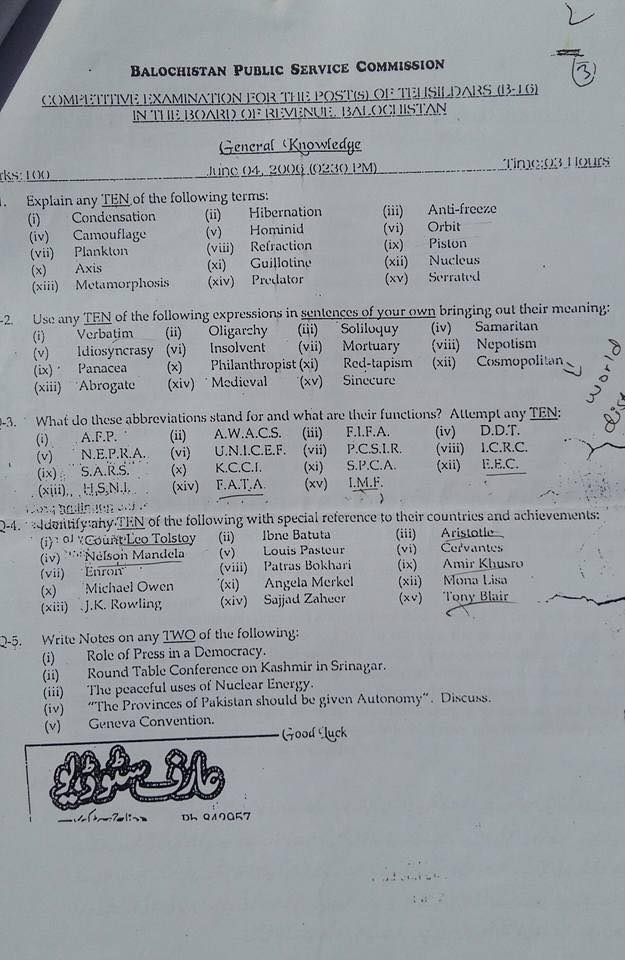 2
3
BALOCHISTAN PUBLIC SERVICE COMMISSION
COMPETITIVE EXAMINATION FOR THE POST(S) OF TEHSILDARS (B-16)
IN THE BOARD OF REVENUE, BALOCHISTAN
General Knowledge
rks:100 June 04, 2006 (02:30 PM) Time:03 Hours
Explain any TEN of the following terms:
(i) Condensation (ii) Hibernation (iii) Anti-freeze
(iv) Camouflage (v) Hominid (vi) Orbit
(vii) Plankton (viii) Refraction (ix) Piston
(x) Axis (xi) Guillotine (xii) Nucleus
(xiii) Metamorphosis (xiv) Predator (xv) Serrated
-2. Use any TEN of the following expressions in sentences of your own bringing out their meaning:
(i) Verbatim (ii) Oligarchy (iii) Soliloquy (iv) Samaritan
(v) Idiosyncrasy (vi) Insolvent (vii) Mortuary (viii) Nepotism
(ix) Panacea (x) Philanthropist (xi) Red-tapism (xii) Cosmopolitan
(xiii) Abrogate (xiv) Medieval (xv) Sinecure
world
-3. What do these abbreviations stand for and what are their functions? Attempt any TEN:
(i) A.F.P. (ii) A.W.A.C.S. (iii) F.I.F.A. (iv) D.D.T.
(v) N.E.P.R.A. (vi) U.N.I.C.E.F. (vii) P.C.S.I.R. (viii) I.C.R.C.
(ix) S.A.R.S. (x) K.C.C.I. (xi) S.P.C.A. (xii) E.E.C.
(xiii) H.S.N.I. (xiv) F.A.T.A. (xv) I.M.F.
Q-4. Identify any TEN of the following with special reference to their countries and achievements:
(i) Count Leo Tolstoy (ii) Ibne Batuta (iii) Aristotle
(iv) Nelson Mandela (v) Louis Pasteur (vi) Cervantes
(vii) Enron (viii) Patras Bokhari (ix) Amir Khusro
(x) Michael Owen (xi) Angela Merkel (xii) Mona Lisa
(xiii) J.K. Rowling (xiv) Sajjad Zaheer (xv) Tony Blair
Q-5. Write Notes on any TWO of the following:
(i) Role of Press in a Democracy.
(ii) Round Table Conference on Kashmir in Srinagar.
(iii) The peaceful uses of Nuclear Energy.
(iv) “The Provinces of Pakistan should be given Autonomy”. Discuss.
(v) Geneva Convention.
Good Luck
عارف سٹوڈیو